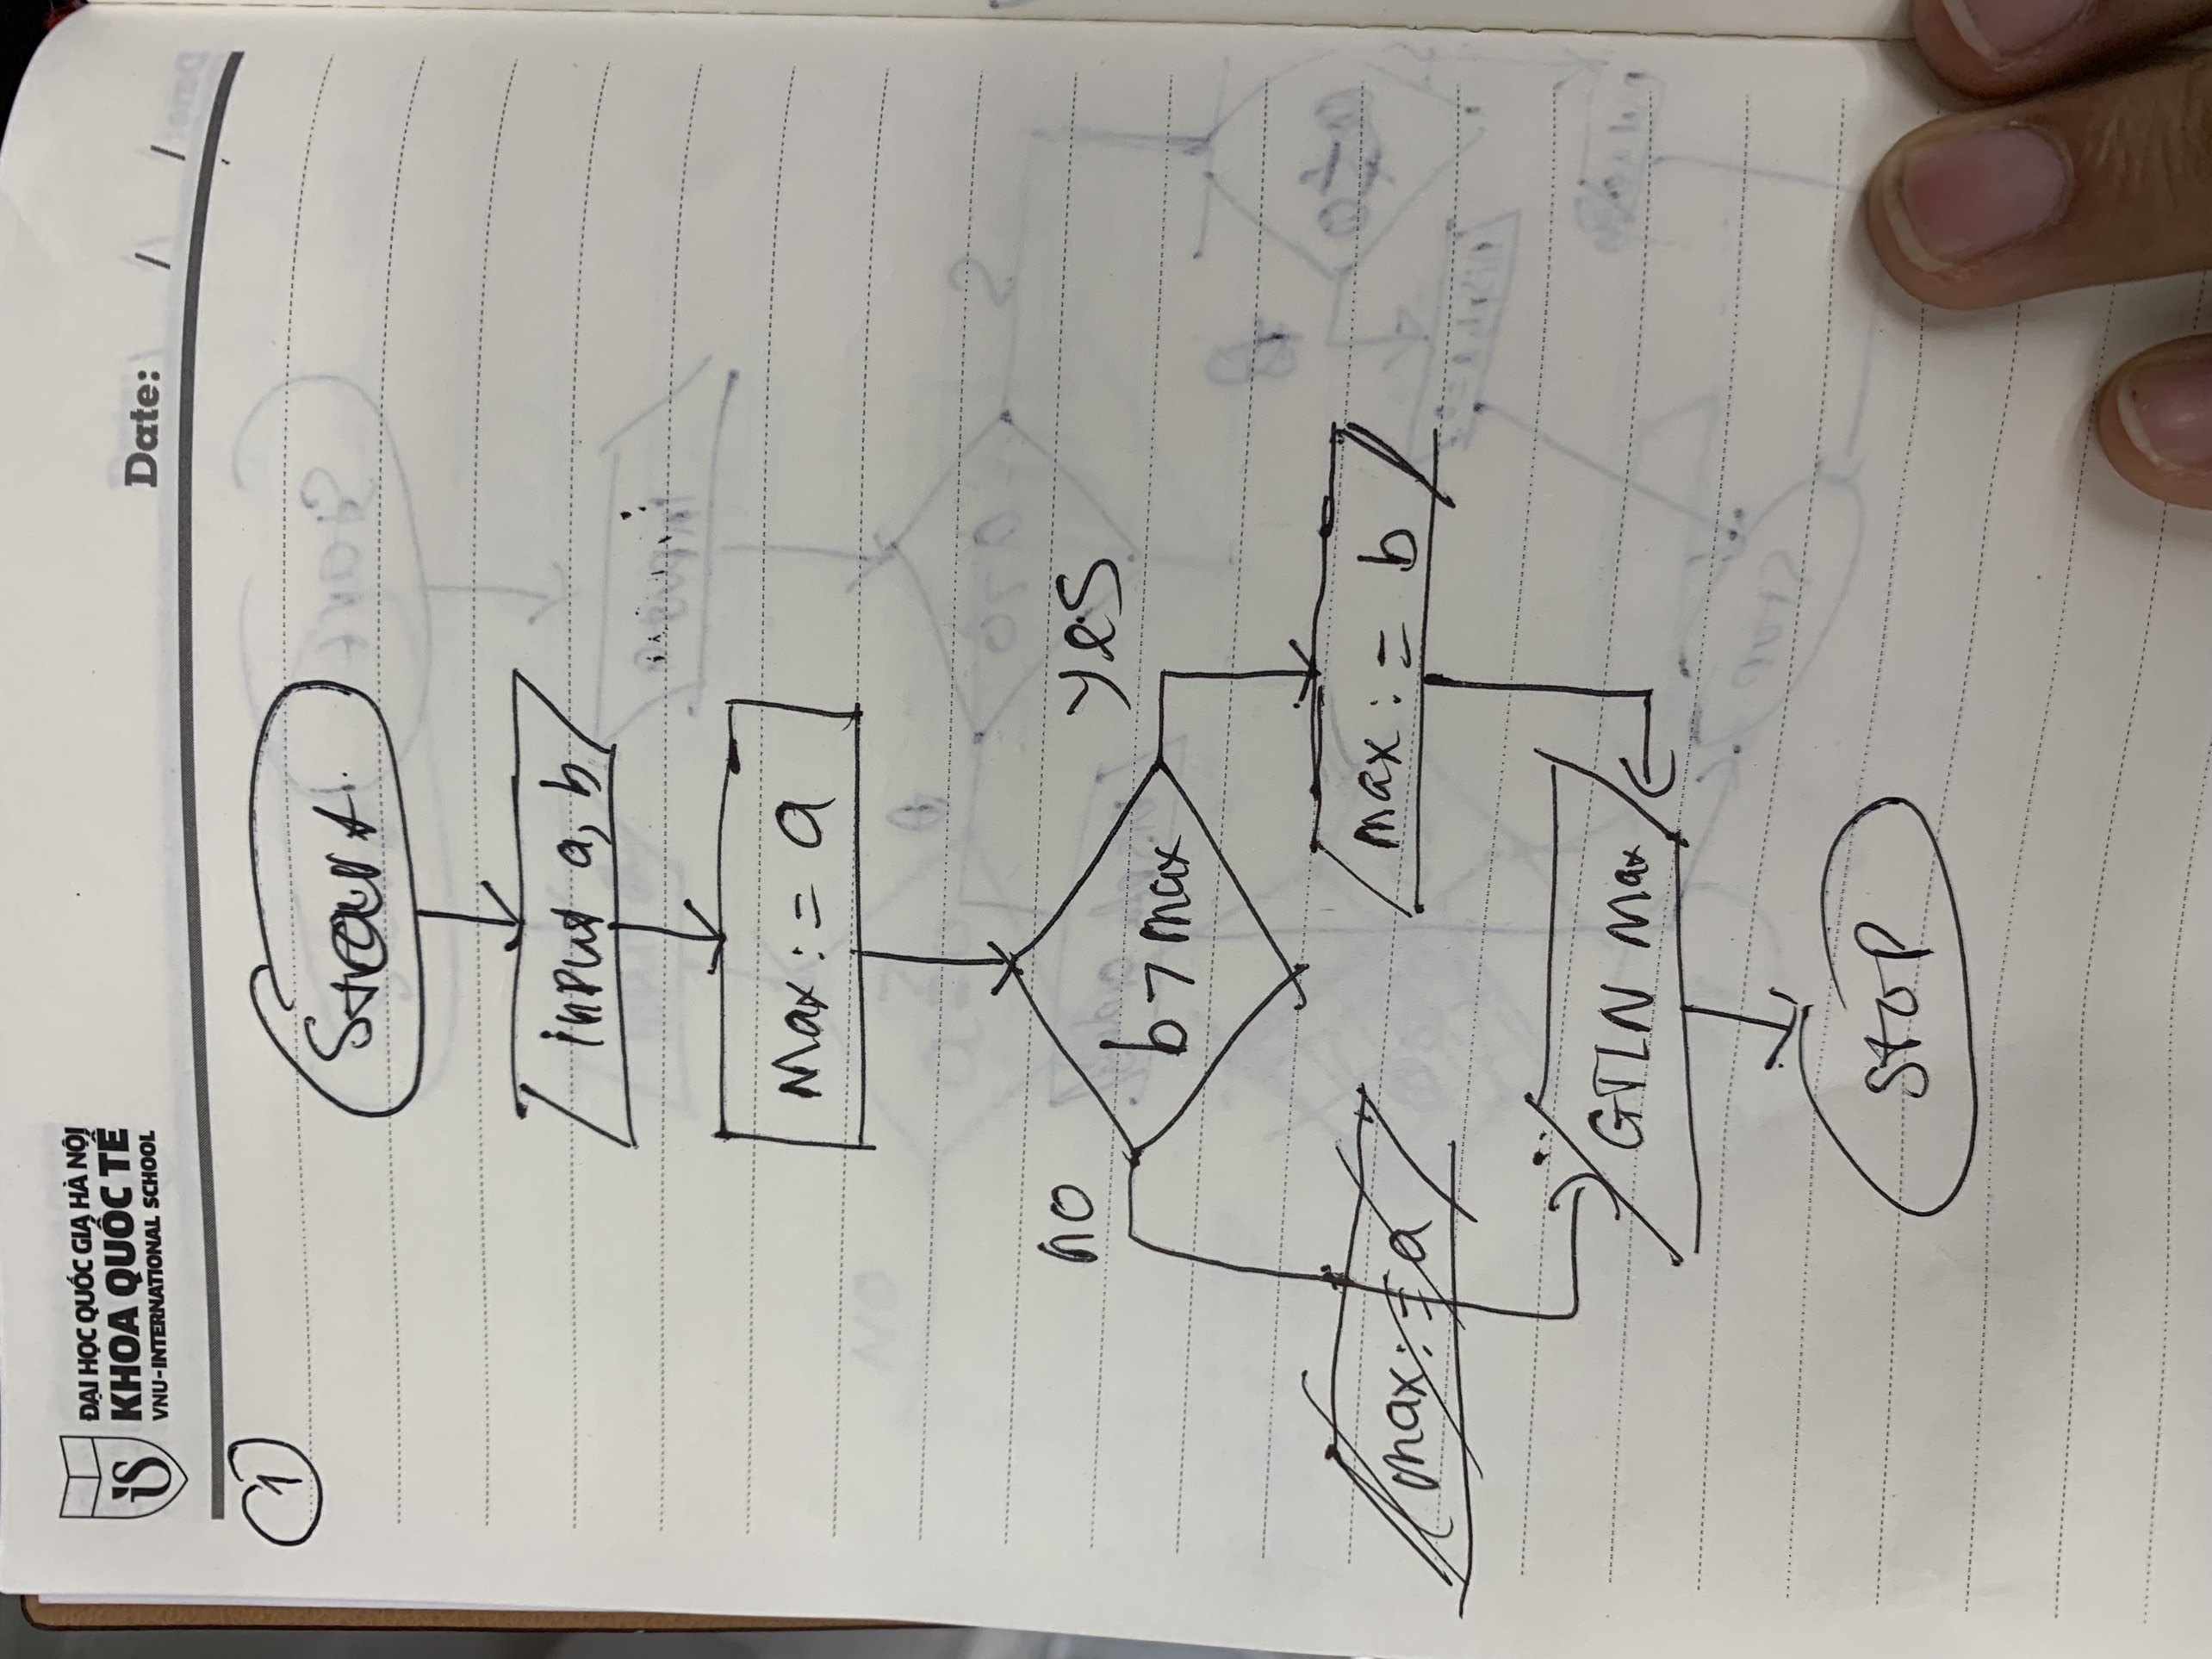 ĐẠI HỌC QUỐC GIA HÀ NỘI
KHOA QUỐC TẾ
VNU-INTERNATIONAL SCHOOL
iS
Date: / /
1
Start
input a, b
Max := a
b > max
no
yes
max := a
max := b
GTLN Max
Stop